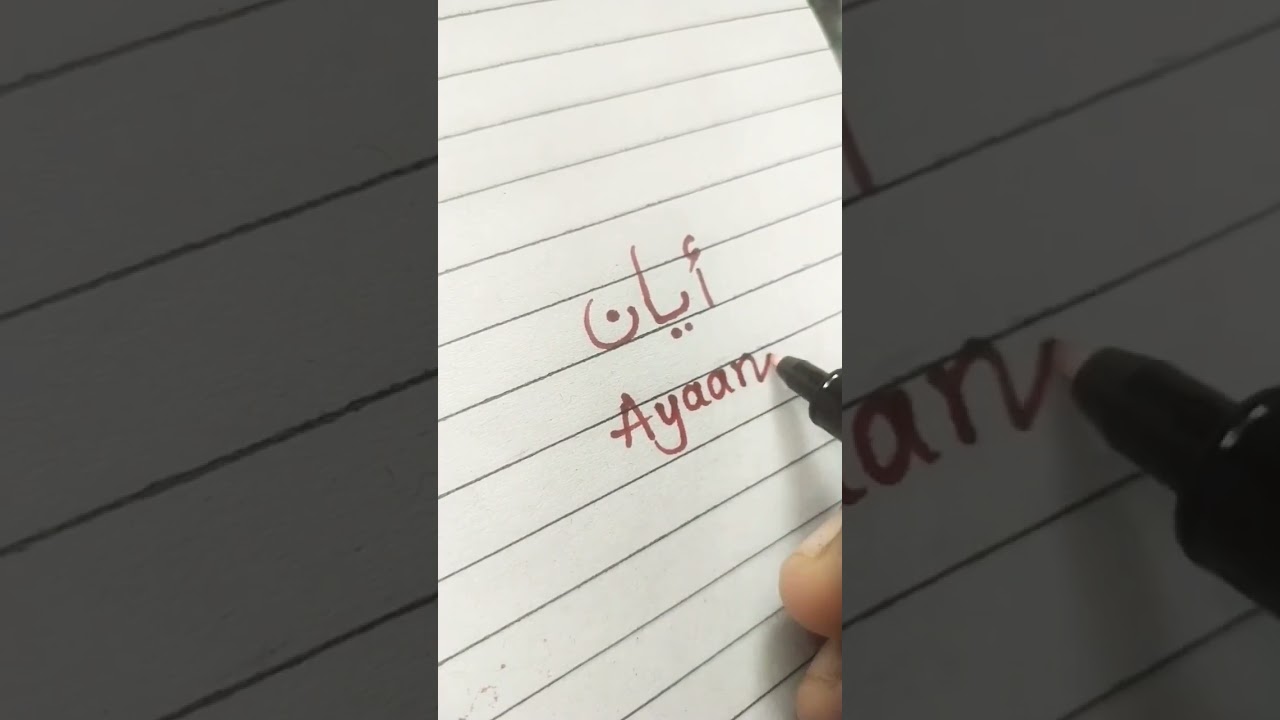 أيان
Ayaan